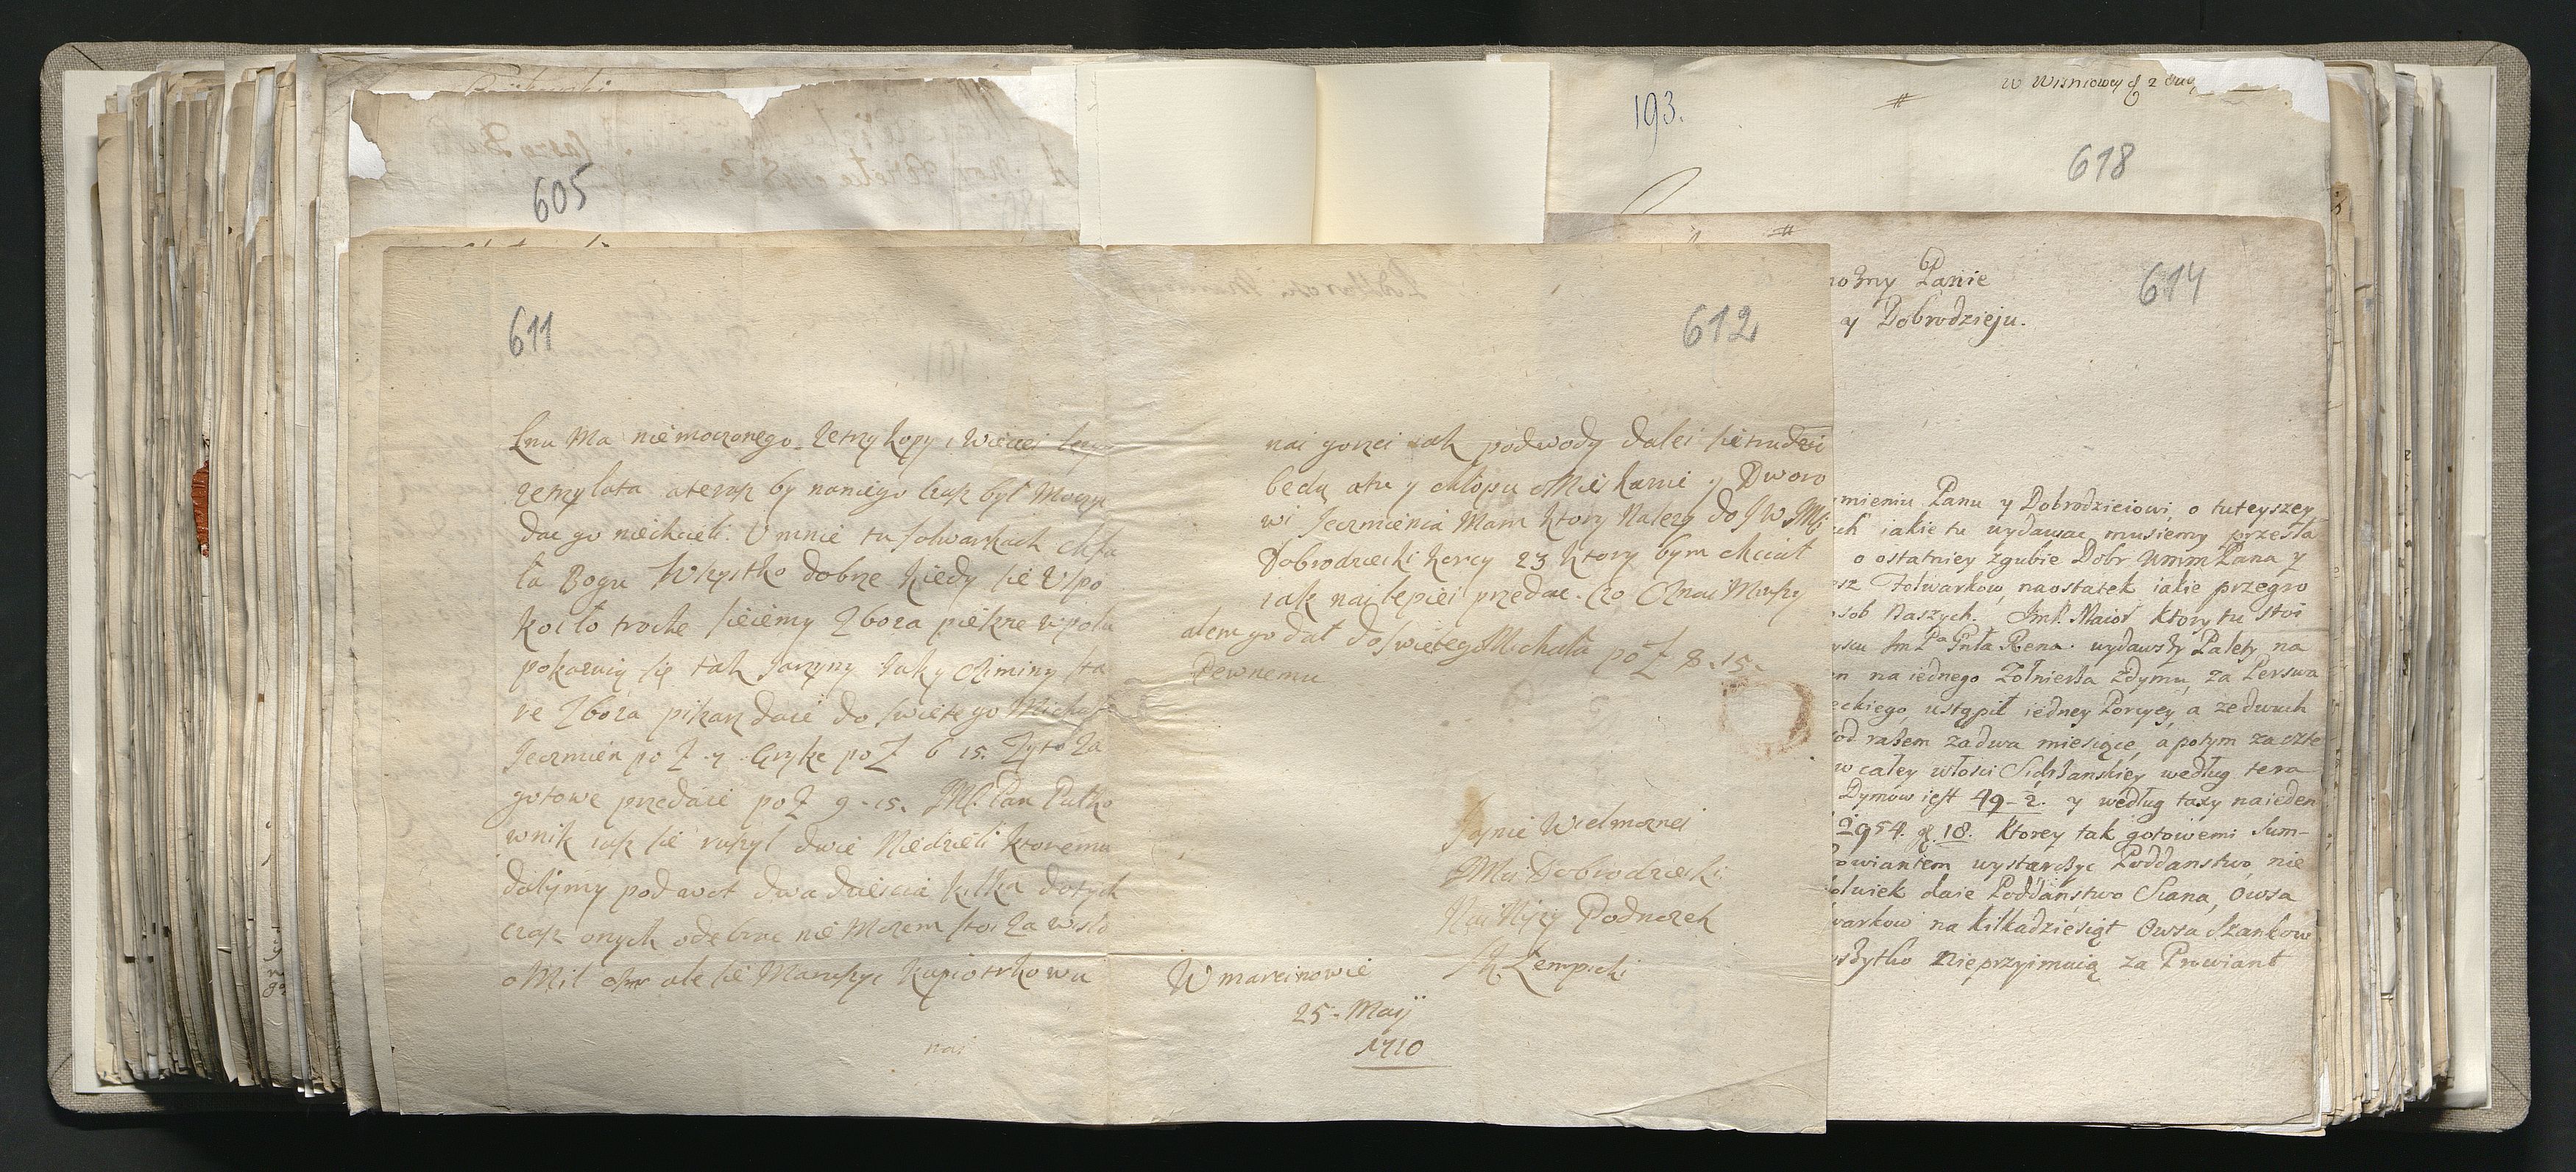 605
611
Lnu Ma niemoczonego zetrzy kopy, i wiecei
zetrzy lata a teraz by naniego czas był Moczyc
dac go niechcieli. U mnie tu folwarkach chfa
ła Bogu Wszystko dobrze kiedy sie Uspo
koiło troche sieiemy Zboza piekne wpolu
pokazuią się tak Jarzyny Jak y Oziminy sta
re Zboza piszaz daię do swietego Michała
Jeczmien po Z 7 Grykę po Z 6 15. Zyto Za
gotowe przedaię po Z 9 - 15. JM. Pan Pułko
wnik iusz sie ruszył dwie Niedzieli ktoremu
dalismy podwot dwadziescia kilka dotych
czas onych odebrac nie Mozem stoi za wisło
o Mil ale sie Maruszyc ku piotrkowu
nai
612
nai gorzei iak podwody dalei sie trudzic
będą a tu y chłopu o Mieszkanie y Dworo
wi Jeczmienia Mam ktory Nalezy do J W JMsci
Dobrodzieiki korcy 23 ktory bym chciał
iak nailepiei przedac. co Oznai Muszę
alem go dał do swietego Michała po Z 8. 15.
Pewnemu
Jasnie Wielmoznei
Msci Dobrodzieiki
Nai Nyzy Podnozek
Łempicki
W marcinowie
25. Maij
1710
193.
w Wisniowcy d 2 Aug
618
614
ożny Panie
y Dobrodzieju.
mieniu Panu y Dobrodzieiowi, o tuteyszey
ch iakie tu wydawac musiemy przesła
o ostatniey zgubie Dobr Wmm Pana y
sz Folwarkow, naostatek iakie przegro
sob Naszych. Jmł. Maior ktory tu stoi
Jm Pa Gnła Rena wydawszy Palety na
n na iednego Zołniersza Zdymu, za Perswa
eckiego, ustąpił iedney Porcyey, a ze dwuch
od razem za dwa miesiące, a potym za czte
w całey włosci Sidrzanskiey według tera
Dymów iest 49-½. y według taxy naieden
2954. gr 18. Ktorey tak gotowemi Sum-
owiantem wystarczyc Poddanstwo nie
olwiek daie Poddanstwo Siana, Owsa
warkow na kilkadziesiąt Owsa Szankow
szytko nieprzyimuią za Prowiant